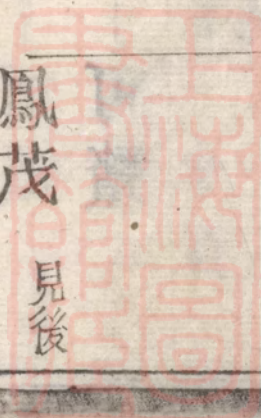 鳳茂 見後
上海圖
書館藏